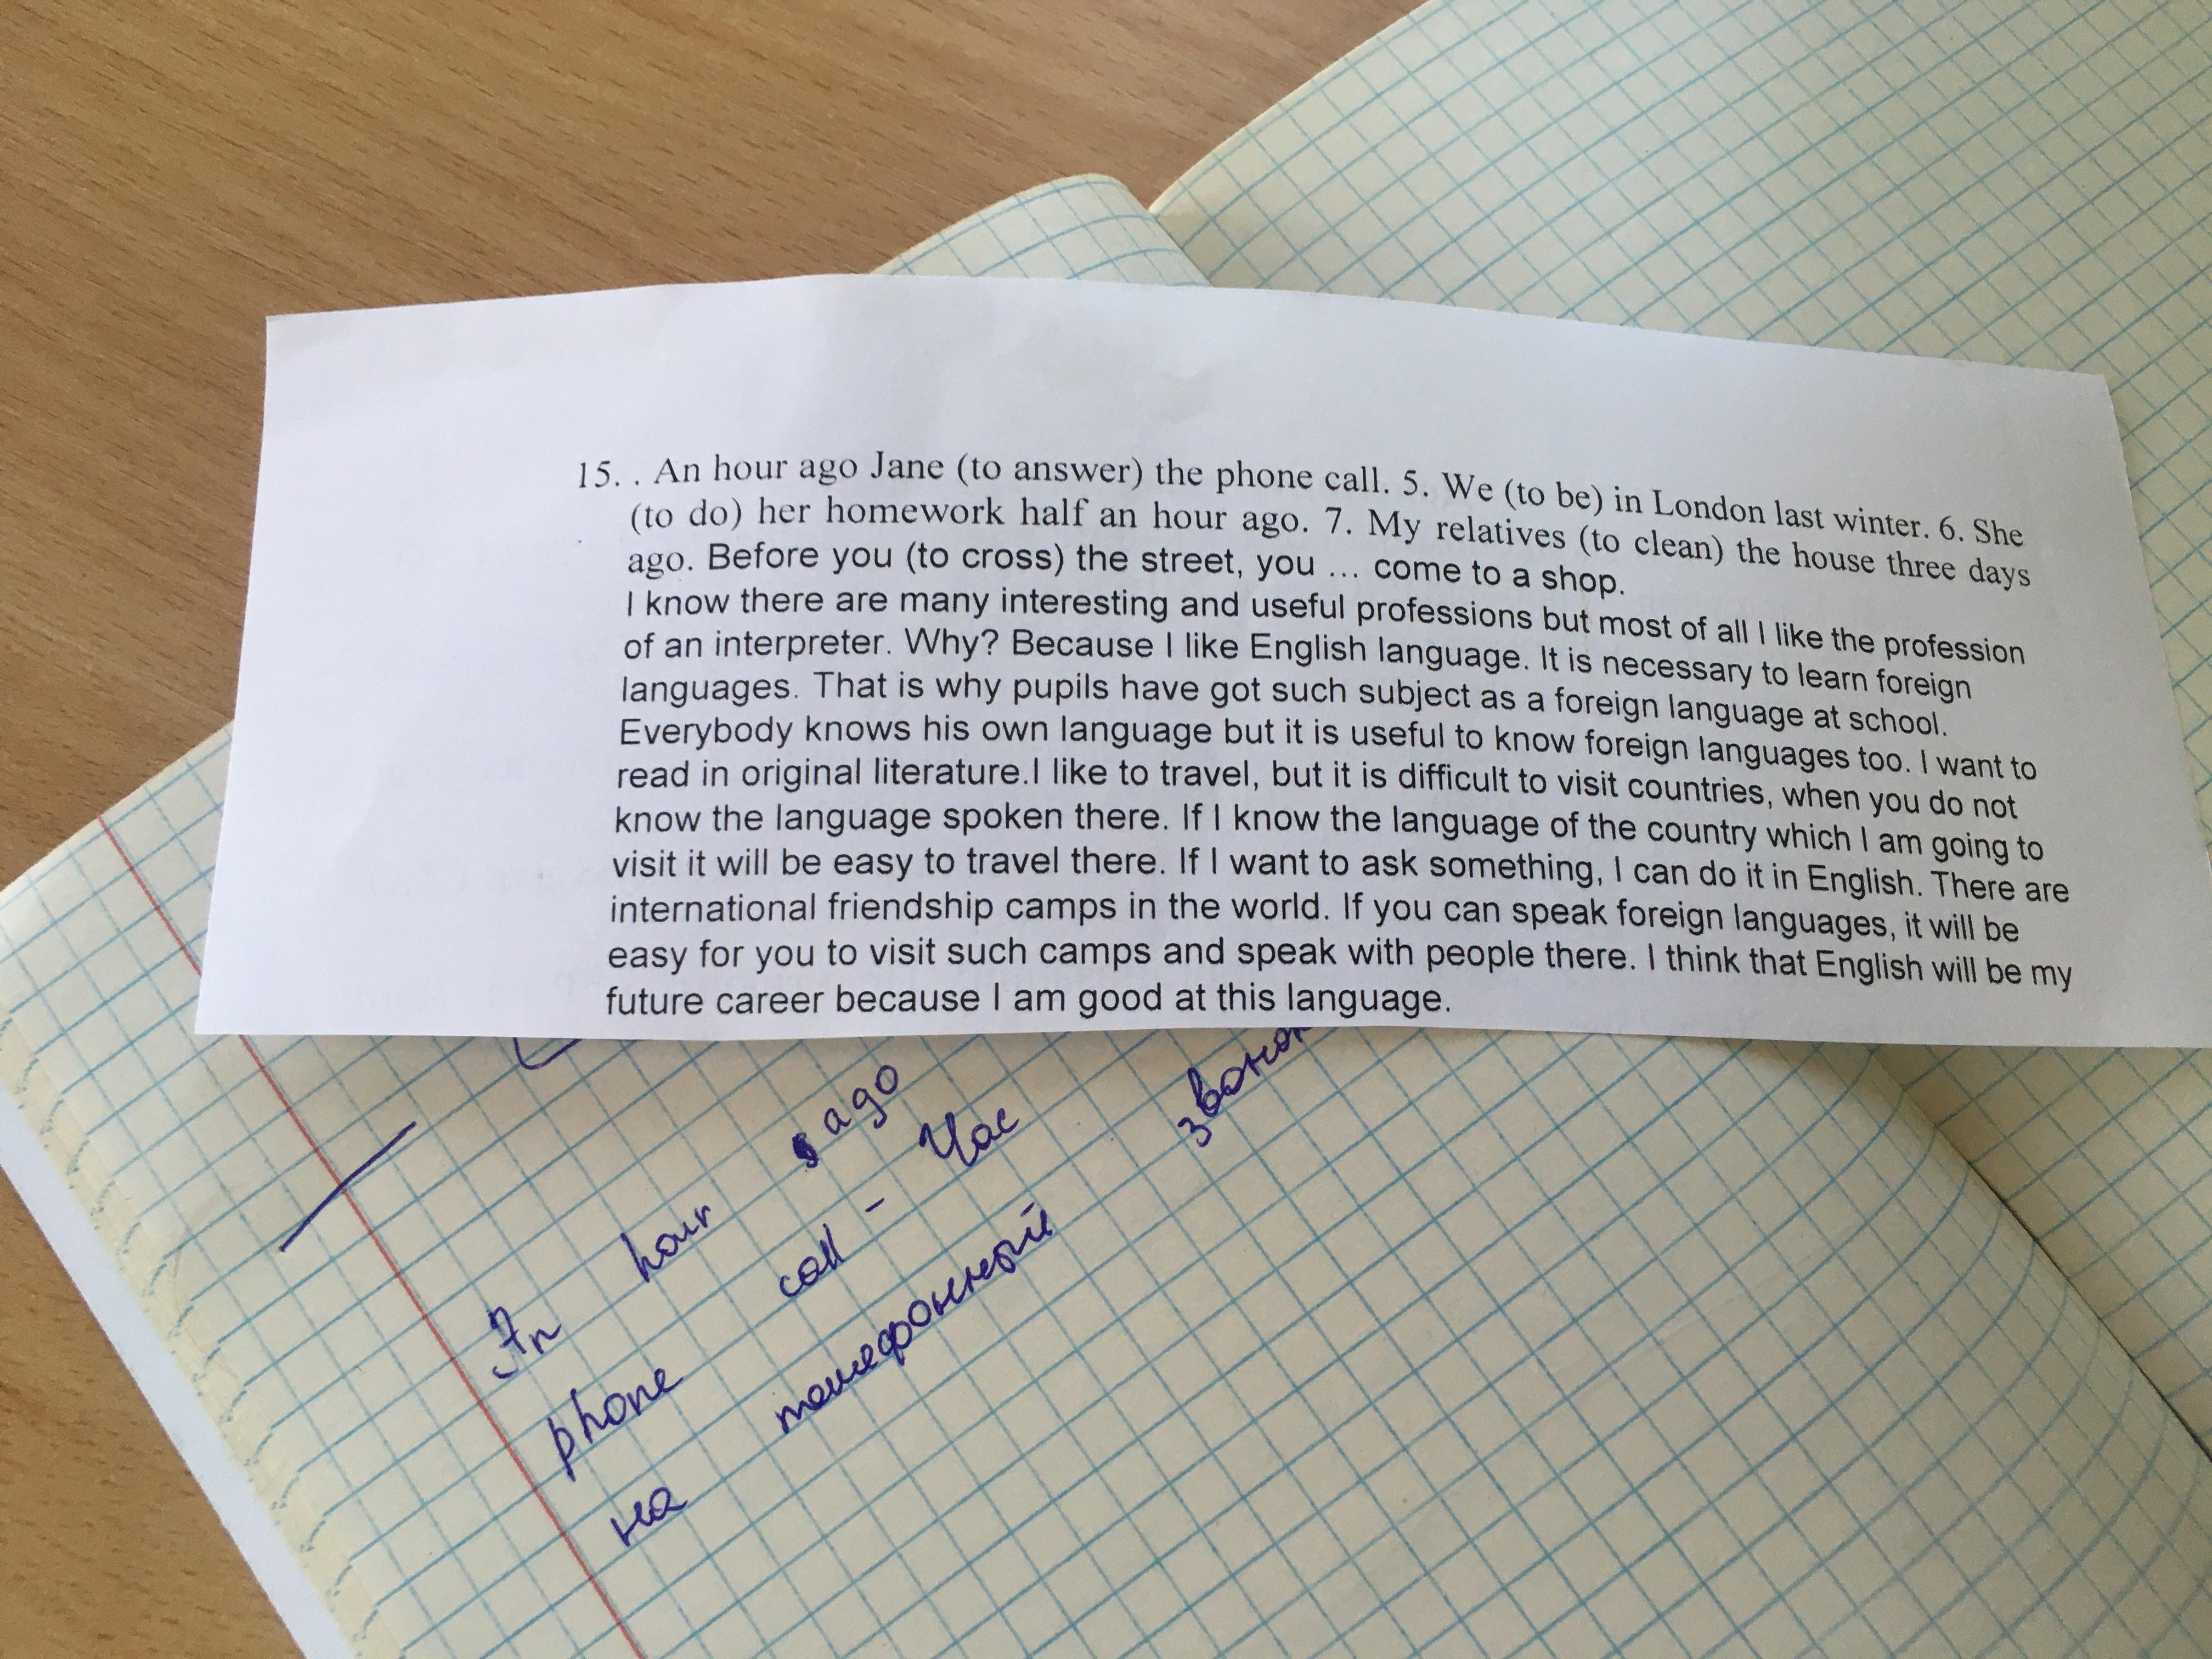 15. . An hour ago Jane (to answer) the phone call. 5. We (to be) in London last winter. 6. She
(to do) her homework half an hour ago. 7. My relatives (to clean) the house three days
ago. Before you (to cross) the street, you ... come to a shop.
I know there are many interesting and useful professions but most of all I like the profession
of an interpreter. Why? Because I like English language. It is necessary to learn foreign
languages. That is why pupils have got such subject as a foreign language at school.
Everybody knows his own language but it is useful to know foreign languages too. I want to
read in original literature.I like to travel, but it is difficult to visit countries, when you do not
know the language spoken there. If I know the language of the country which I am going to
visit it will be easy to travel there. If I want to ask something, I can do it in English. There are
international friendship camps in the world. If you can speak foreign languages, it will be
easy for you to visit such camps and speak with people there. I think that English will be my
future career because I am good at this language.
An hour ago
phone call - Час
на телефонный звонок